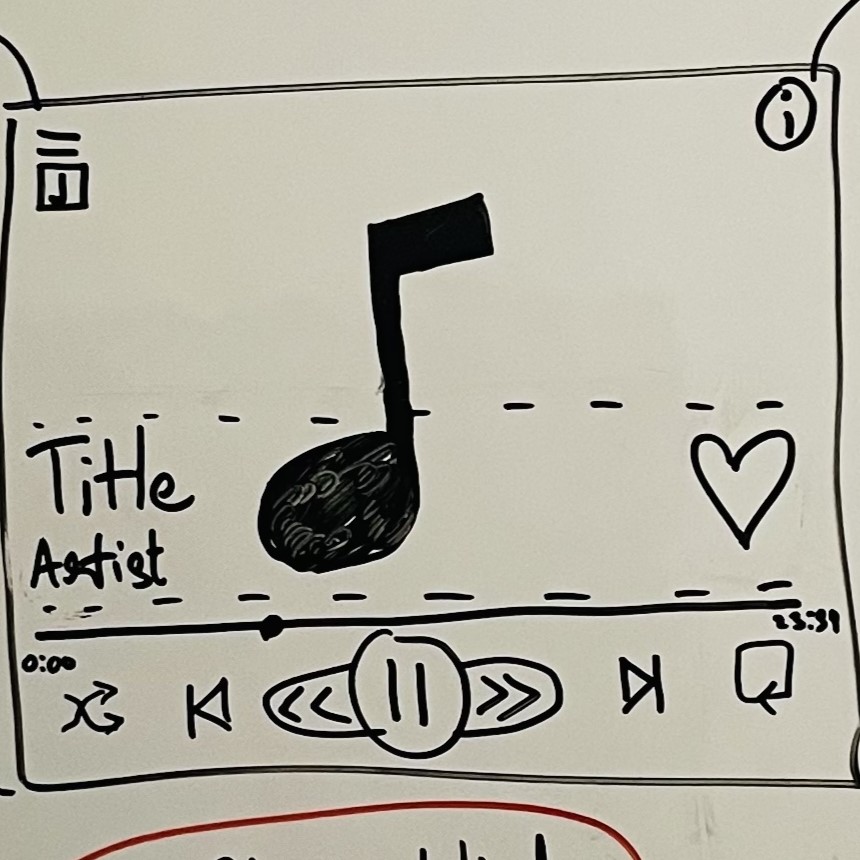 i
Title
Artist
0:00
23:59